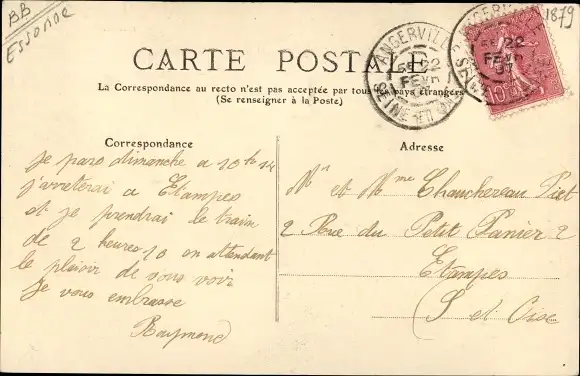 BB
Essonne
1879
CARTE POSTALE
La Correspondance au recto n'est pas acceptée par tous les pays étrangers
(Se renseigner à la Poste)
ANGERVILLE
22
FEVR
07
SEINE-ET-OISE
10
Correspondance
Je pars dimanche a 10h 14
j'arreterai a Etampes
et je prendrai le train
de 2 heures 10 en attendant
le plaisir de vous voir
Je vous embrasse
Raymond
Adresse
Mr et Mme Chauchereau Piet
2 Rue du Petit Panier 2
Etampes
S et Oise